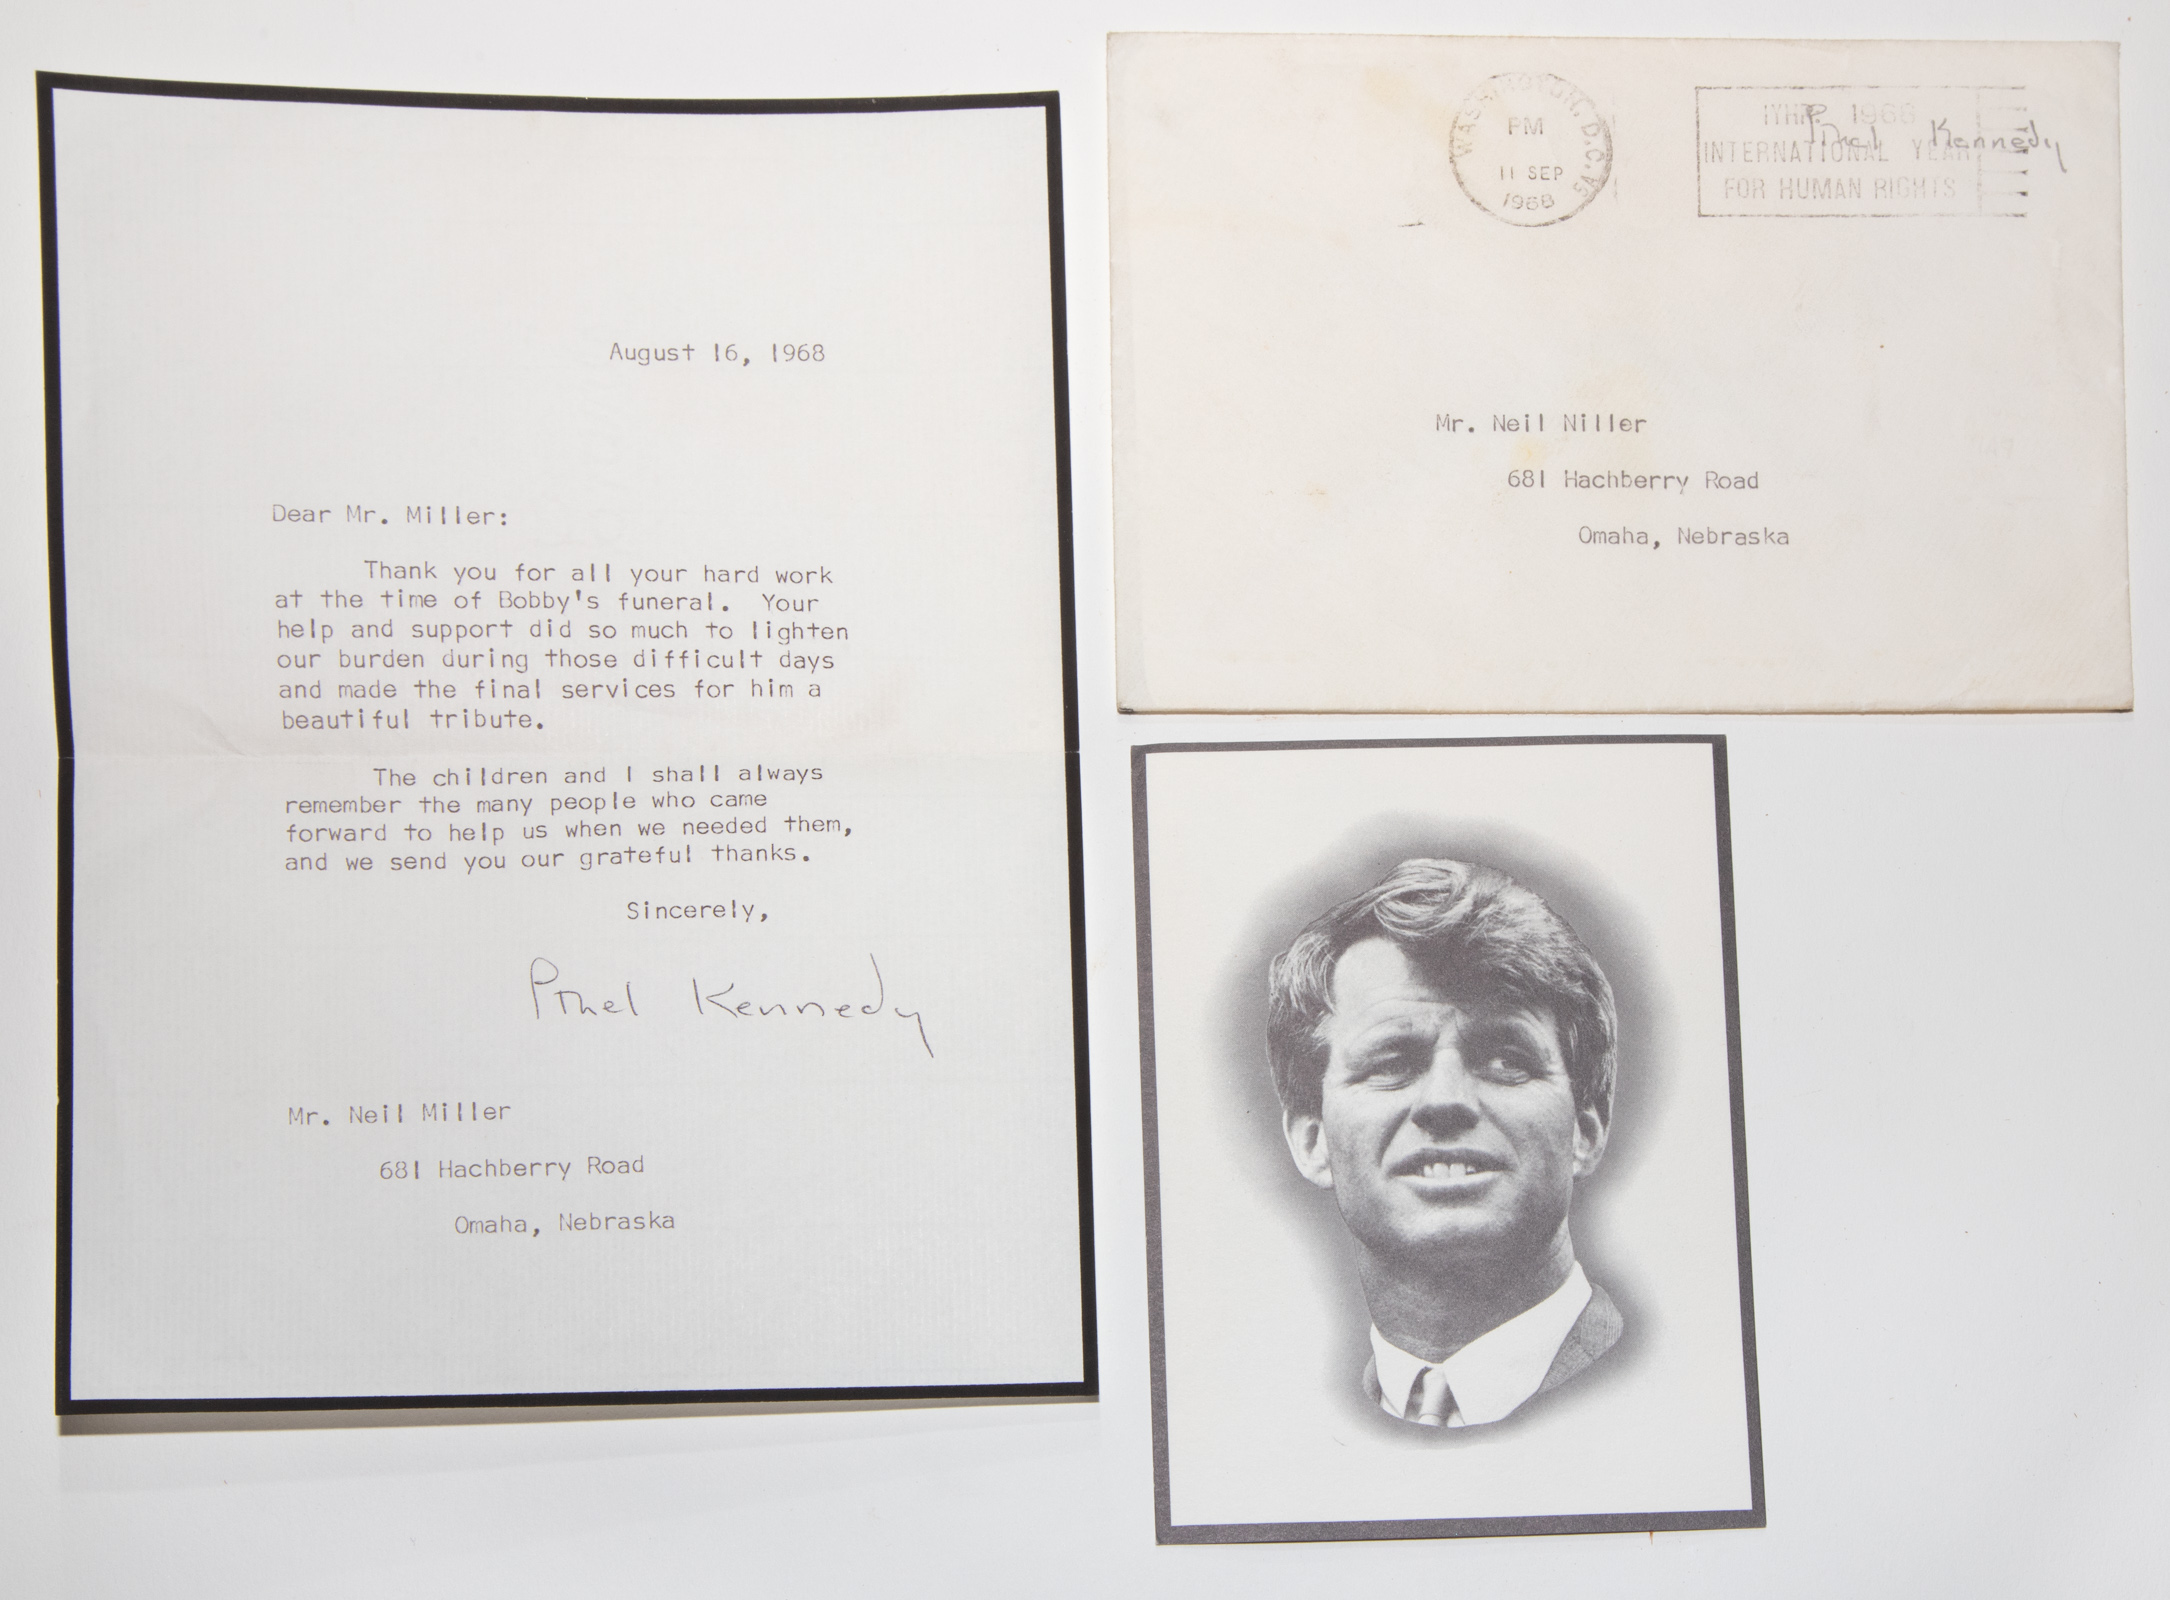 August 16, 1968
Dear Mr. Miller:
Thank you for all your hard work
at the time of Bobby's funeral. Your
help and support did so much to lighten
our burden during those difficult days
and made the final services for him a
beautiful tribute.
The children and I shall always
remember the many people who came
forward to help us when we needed them,
and we send you our grateful thanks.
Sincerely,
Ethel Kennedy
Mr. Neil Miller
681 Hachberry Road
Omaha, Nebraska
WASHINGTON, D.C.
PM
11 SEP
1968
IYHR 1968
INTERNATIONAL YEAR
FOR HUMAN RIGHTS
Ethel Kennedy
Mr. Neil Niller
681 Hachberry Road
Omaha, Nebraska